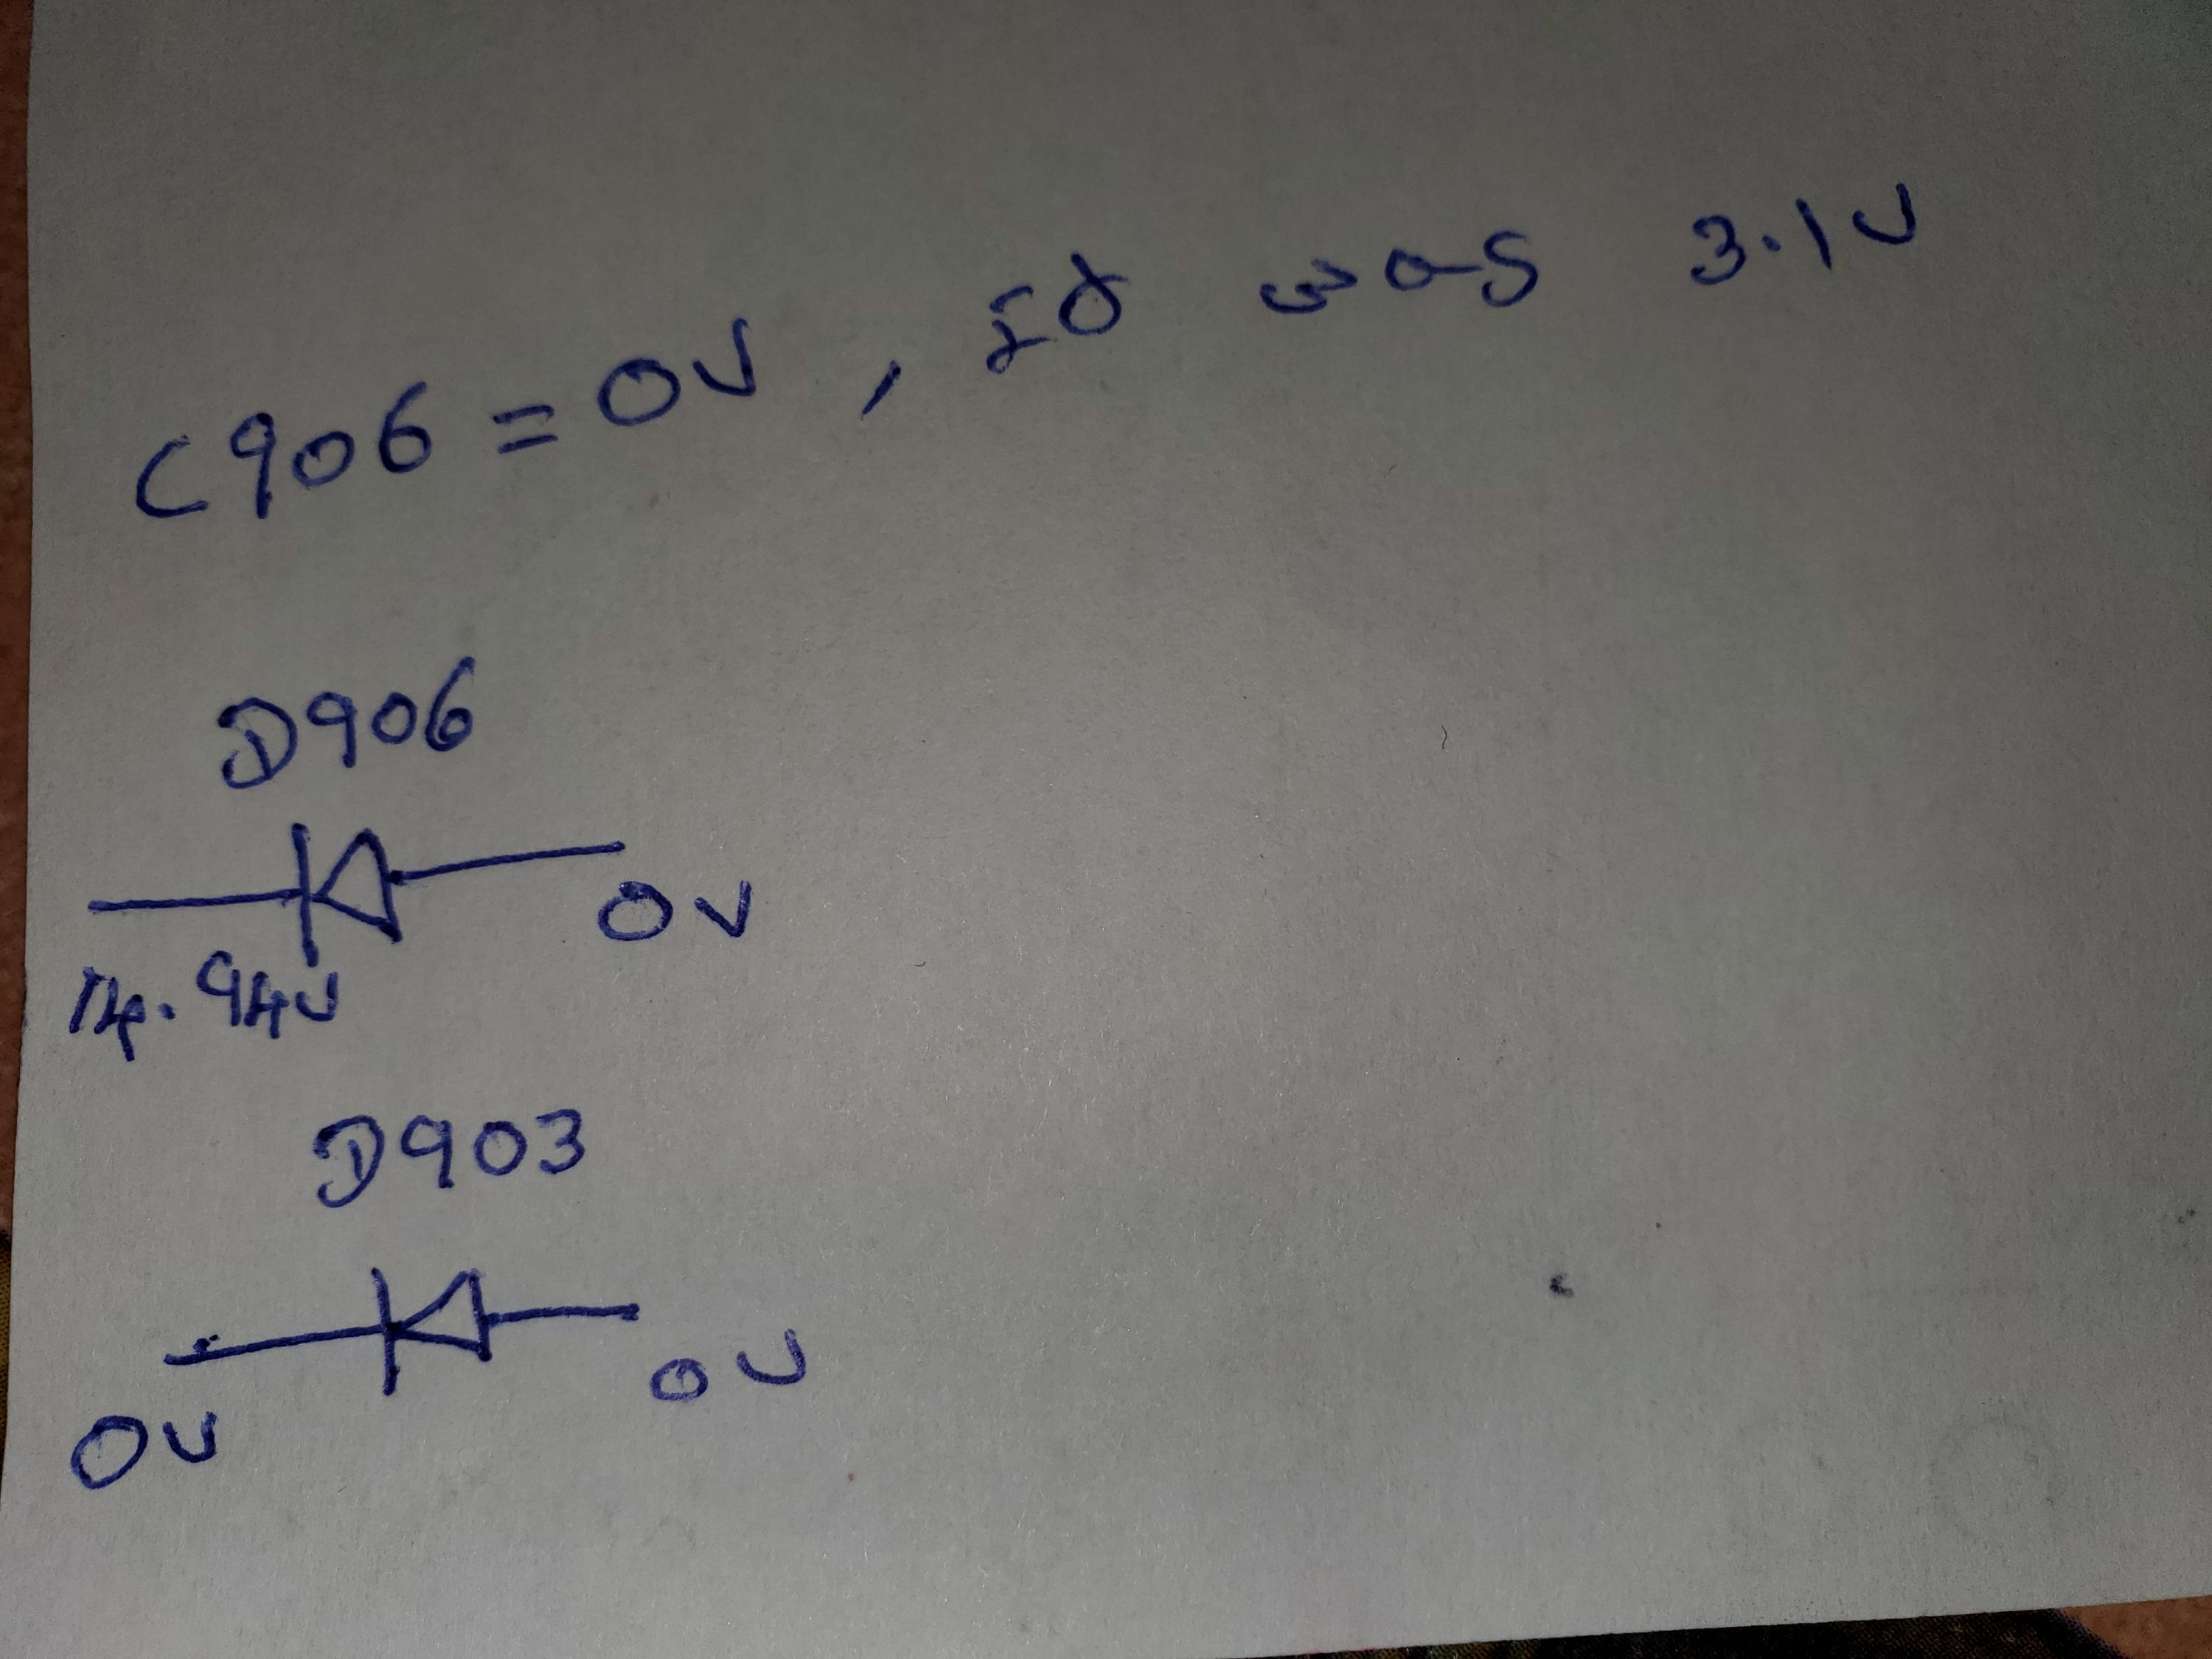 C906 = 0V, it was 3.1V
D906
14.94V 0V
D903
0V 0V